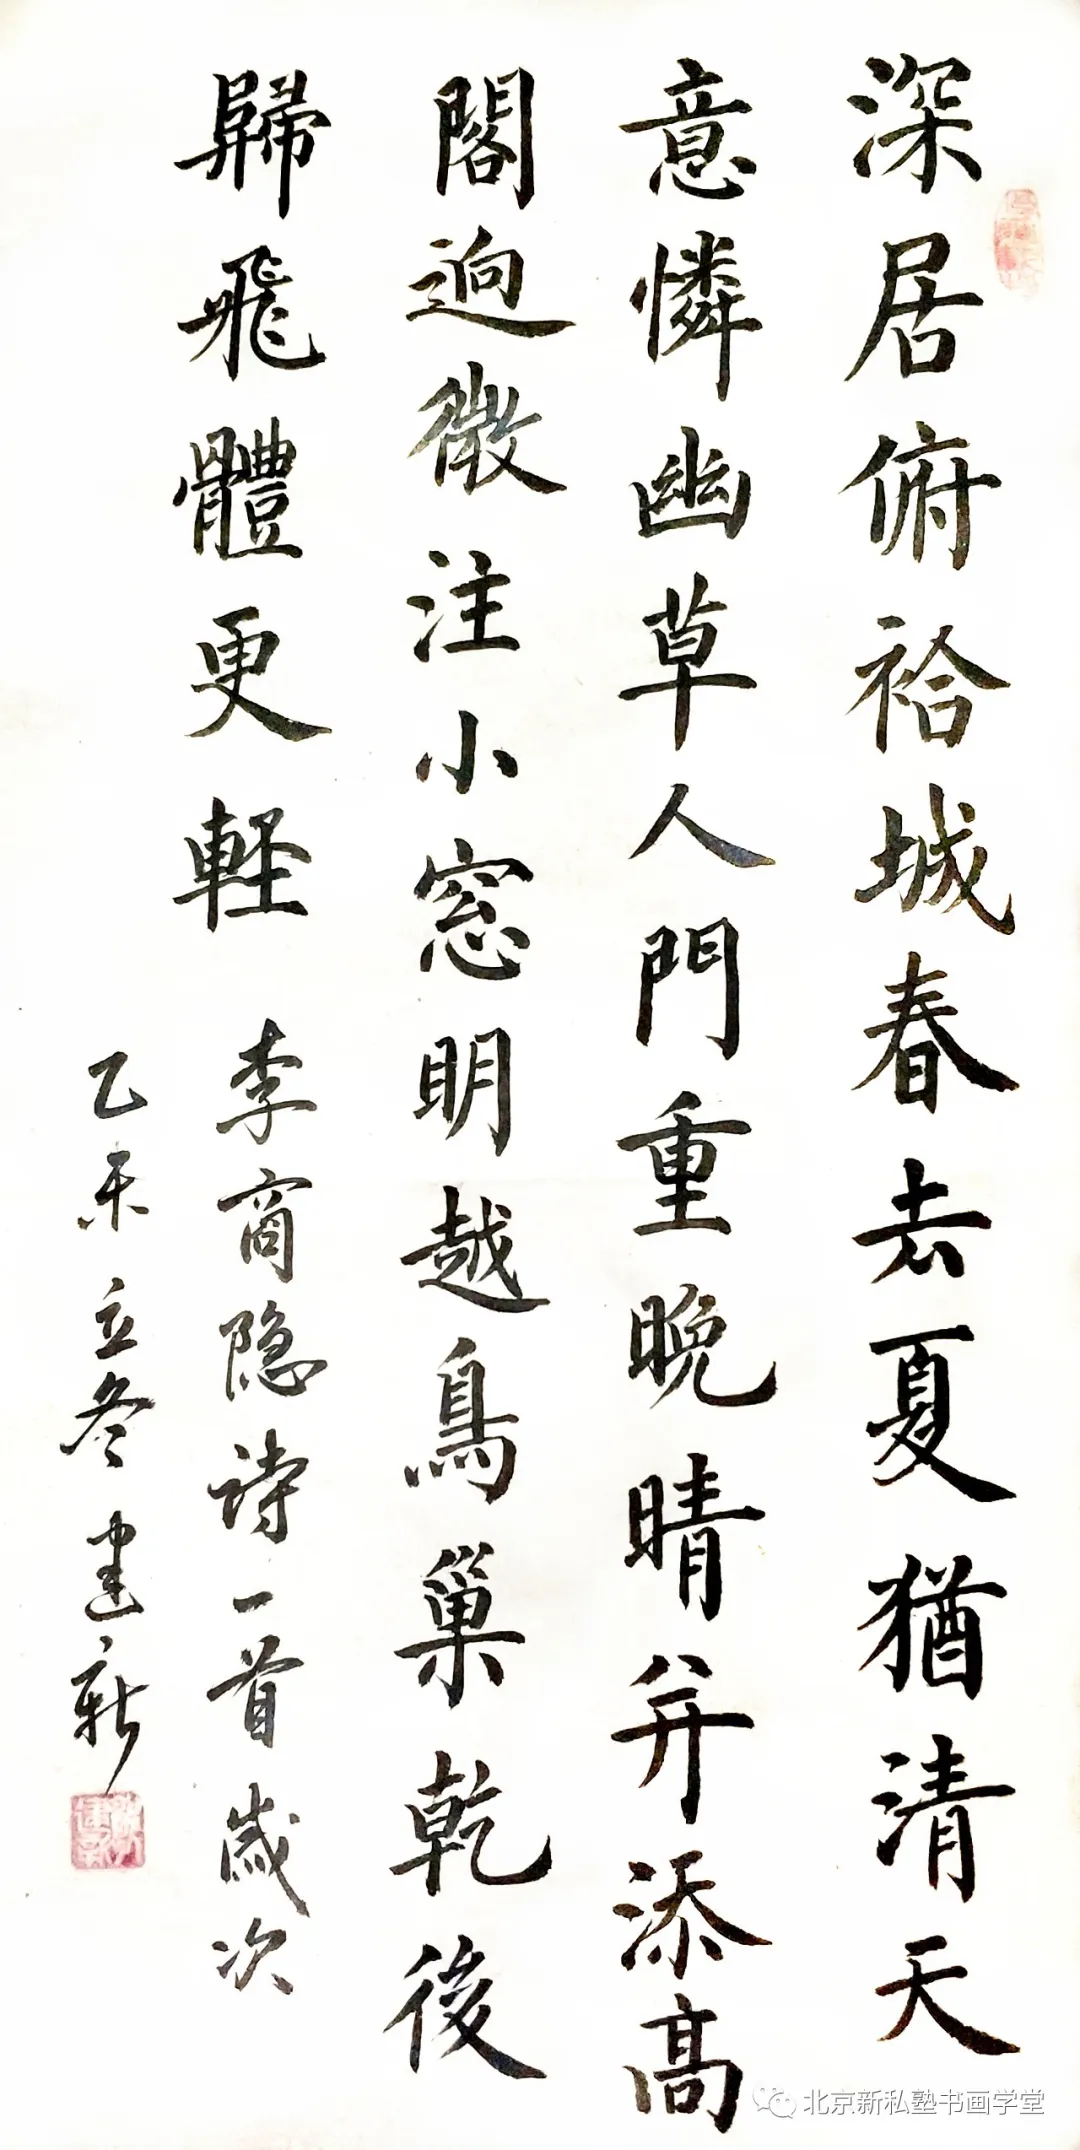 深居俯祫城春去夏猶清天
意憐幽草人門重晚晴并添高
閣逈微注小窓明越鳥巢乾後
歸飛體更軽 李商隐诗一首歲次
乙未立冬建新
北京新私塾书画学堂